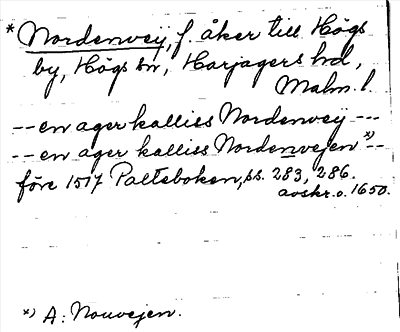 * Nordenveÿ, f. åker till Högs
by, Högs sn, Harjagers hd,
Malm. l.
-- en ager kalliss Nordenveÿ ---
-- en ager kalliss Nordenvejen *) --
före 1517 Palteboken, ss. 283, 286.
avskr. o. 1650.
*) A: Nouvejen.